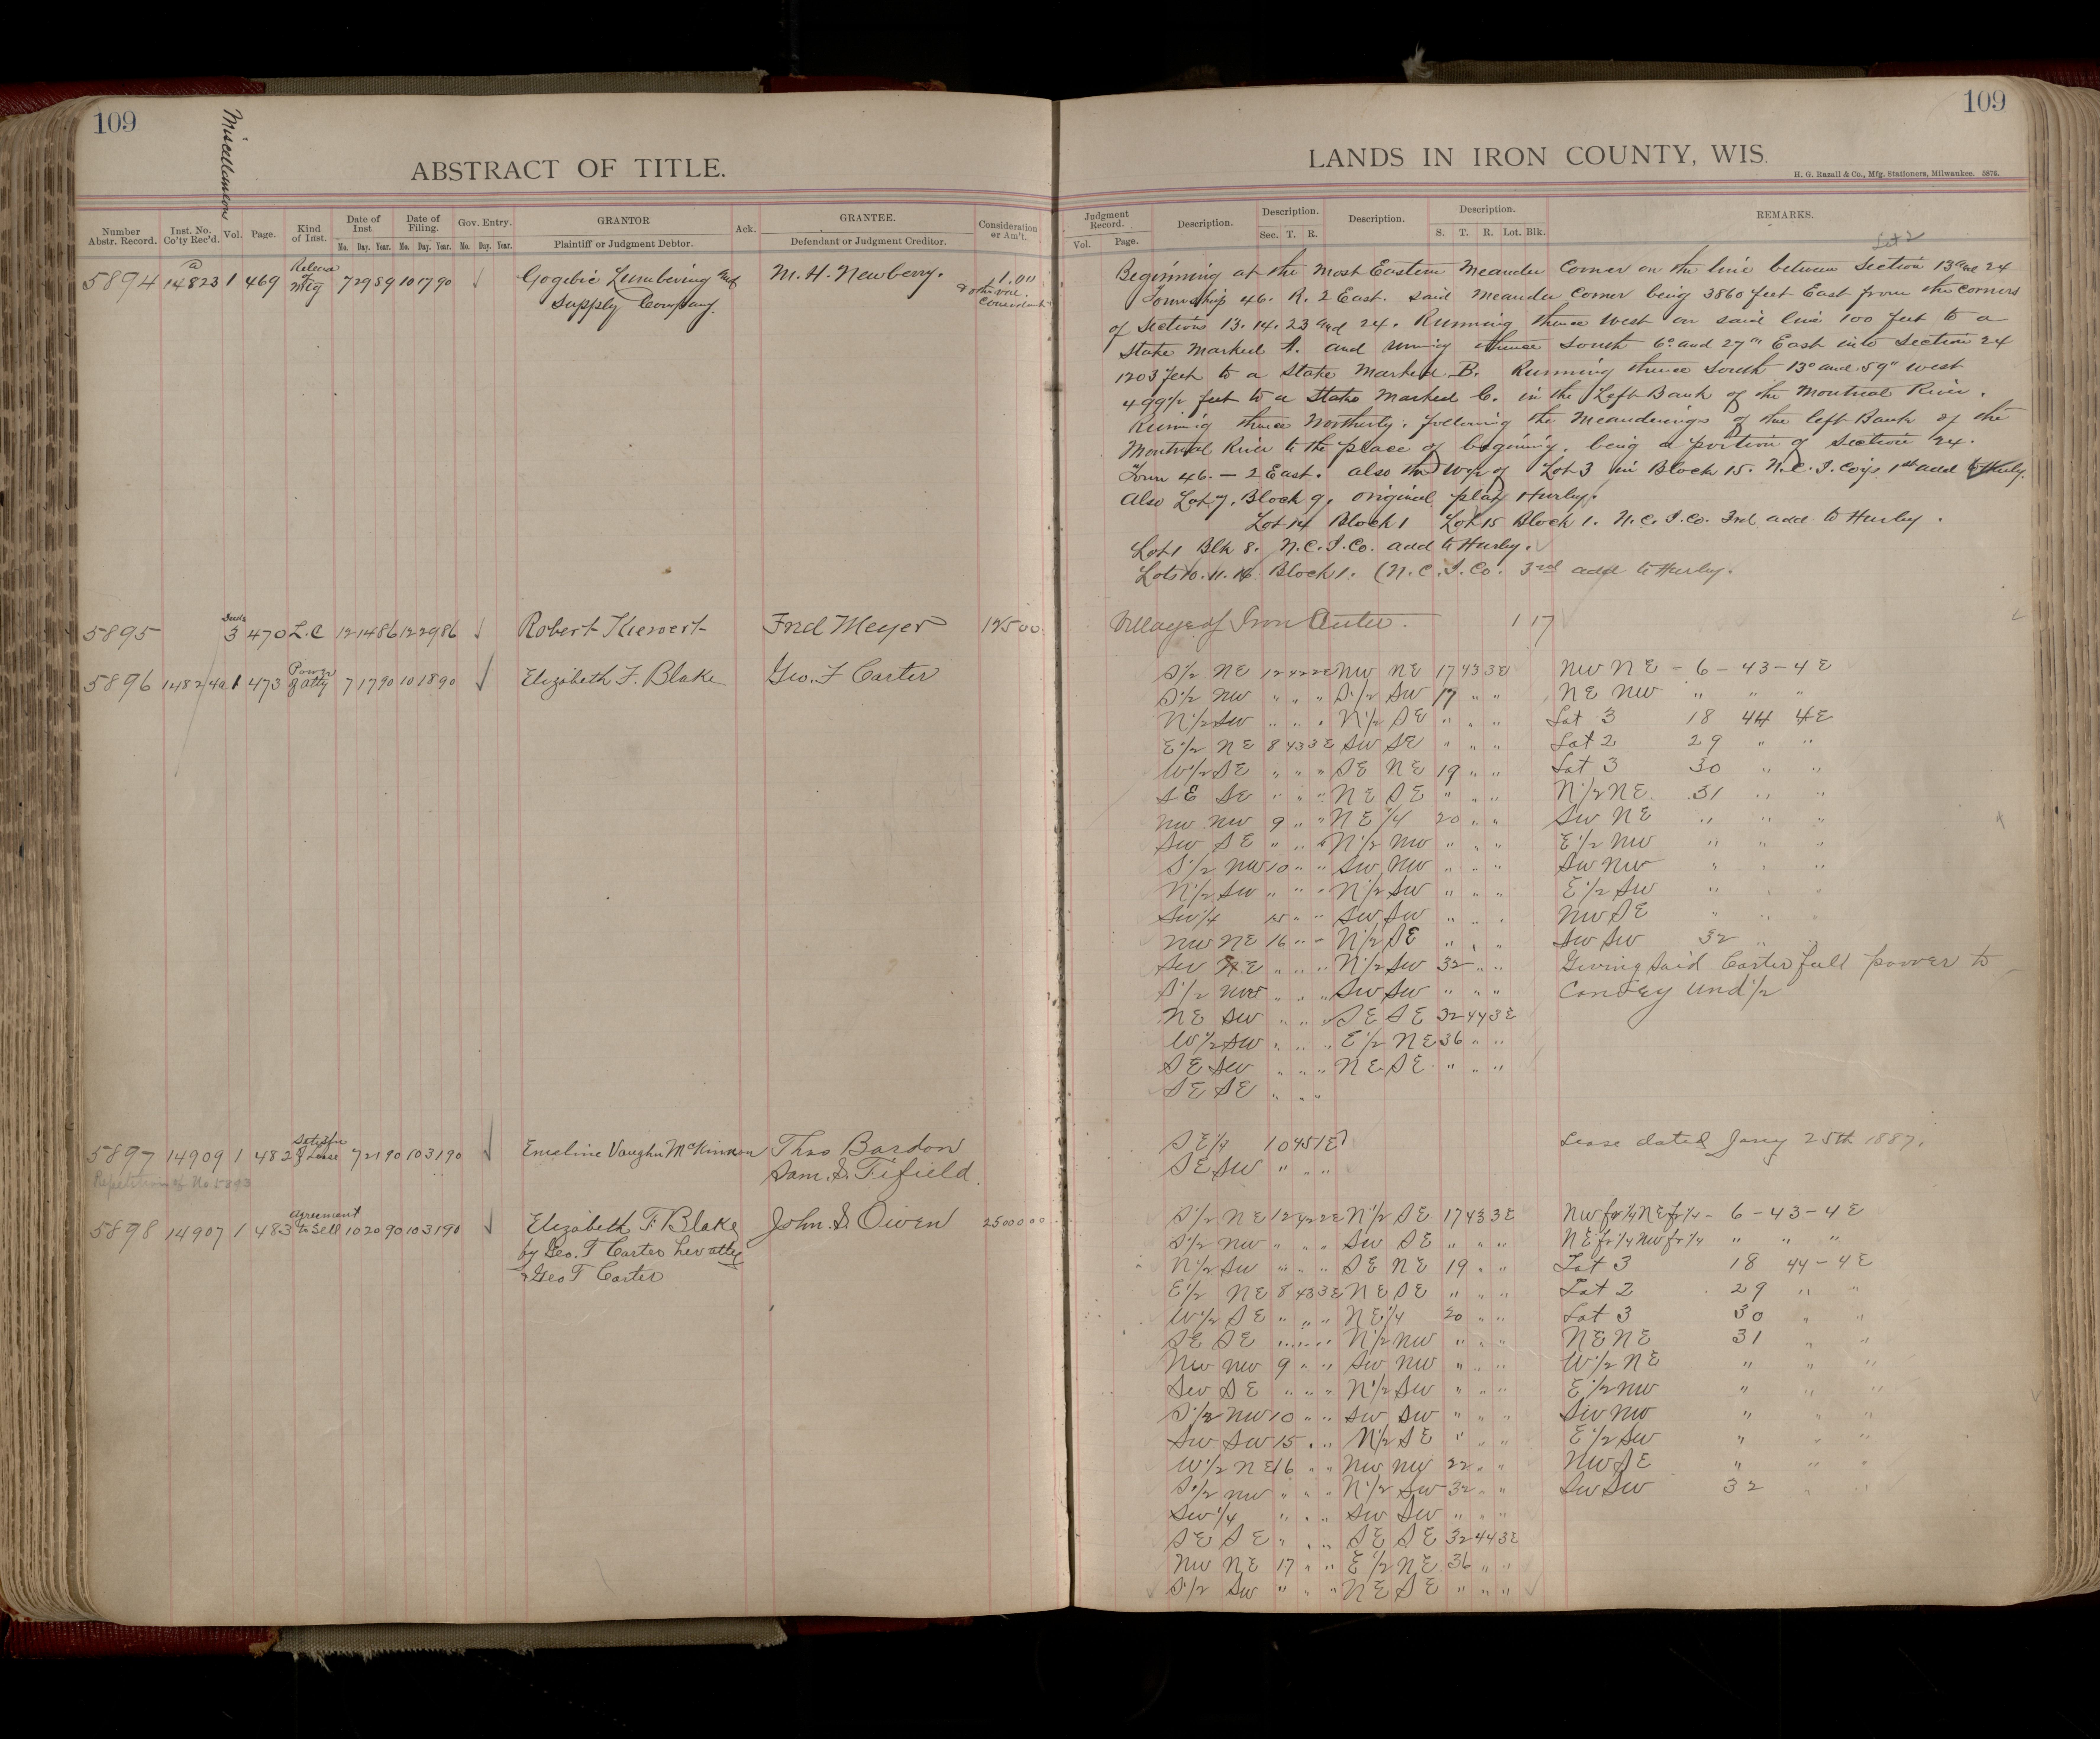 109
Miscellaneous
ABSTRACT OF TITLE.
Number Abstr. Record. Inst. No. Co'ty Rec'd. Vol. Page. Kind of Inst. Date of Inst Date of Filing. Gov. Entry. GRANTOR Ack. GRANTEE. Consideration or Am't.
Mo. Day. Year. Mo. Day. Year. Mo. Day. Year. Plaintiff or Judgment Debtor. Defendant or Judgment Creditor.
5894 14823 a 1 469 Release of Mtg 7 29 89 10 17 90 Gogebic Lumbering and M. H. Newberry. 1.00
Supply Company. & oth. val.
5895 Deeds 3 470 L.C 12 14 86 12 29 86 Robert Fred Meyer 125 00
5896 1482 1 473 Power of atty 7 17 90 10 18 90 Elizabeth F. Blake Geo. F Carter
5897 14909 1 482 Satisfn of Lease 7 21 90 10 31 90 Emeline Vaughn McKinnon Thos Bardon
Repetition of No 5893 Sam. S. Fifield.
5898 14907 1 483 agreement to sell 10 20 90 10 31 90 Elizabeth F. Blake John S. Owen 25000 00
by Geo. T Carter her atty
& Geo T Carter
109
LANDS IN IRON COUNTY, WIS.
H. G. Razall & Co., Mfg. Stationers, Milwaukee. 5876.
Judgment Record. Description. Description. Description. Description. REMARKS.
Vol. Page. Sec. T. R. S. T. R. Lot. Blk.
Lot 2
Beginning at the most Eastern Meander Corner on the line between Section 13 and 24
Township 46. R. 2 East. said Meander Corner being 3860 feet East from the Corners
of Sections 13. 14. 23 and 24. Running thence West on said line 100 feet to a
Stake Marked A. and running thence South 6° and 27" East into Section 24
1203 feet to a Stake Marked B. Running thence South 13° and 59" West
499½ feet to a Stake Marked C. in the Left Bank of the Montreal River.
Running thence Northerly. following the Meanderings of the left Bank of the
Montreal River to the place of beginning. being a portion of Section 24.
Town 46. — 2 East. also the W ½ of Lot 3 in Block 15. N.C.I.Co's 1st add to Hurley.
Also Lot 7. Block 9. original plat Hurley.
Lot 14 Block 1 Lot 15 Block 1. N.C.I.Co. 3rd add to Hurley.
Lot 1 Blk 8. N.C.I.Co. add to Hurley.
Lots 10. 11. 16 Block 1. (N.C.I.Co. 3rd add to Hurley.
Village of Iron Center. 1 17
S½ NE 12 42 2E NW NE 17 43 3E NW NE - 6 - 43 - 4E
S½ NW " " " S½ SW 17 " " NE NW " " "
N½ SW " " " N½ SE " " " Lot 3 18 44 4E
E½ NE 8 43 3E SW SE " " " Lot 2 29 " "
W½ SE " " " SE NE 19 " " Lot 3 30 " "
SE SE " " " NE SE " " " N½ NE 31 " "
NW NW 9 " " NE ¼ 20 " " SW NE " " "
SW SE " " " N½ NW " " " E½ NW " " "
S½ NW 10 " " SW NW " " " SW NW " " "
N½ SW " " " N½ SW " " " E½ SW " " "
SW ¼ 15 " " SW SW " " " NW SE " " "
NW NE 16 " " N½ SE " " " SW SW 32 " "
SW NE " " " N½ SW 32 " " Giving said Carter full power to
S½ NW " " " SW SW " " " Convey und ½
NE SW " " " SE SE 32 44 3E
W½ SW " " " E½ NE 36 " "
SE SW " " " NE SE " " "
SE SE " " "
SE ¼ 10 45 1E Lease dated Jany 25th 1887.
SE SW " " "
S½ NE 12 42 2E N½ SE 17 43 3E NW fr ¼ NE fr ¼ - 6 - 43 - 4E
S½ NW " " " SW SE " " " NE fr ¼ NW fr ¼ " " "
N½ SW " " " SE NE 19 " " Lot 3 18 44 - 4E
E½ NE 8 43 3E NE SE " " " Lot 2 29 " "
W½ SE " " " NE ¼ 20 " " Lot 3 30 " "
SE SE " " " N½ NW " " " NE NE 31 " "
NW NW 9 " " SW NW " " " W½ NE " " "
SW SE " " " N½ SW " " " E½ NW " " "
S½ NW 10 " " SW SW " " " SW NW " " "
SW SW 15 " " N½ SE " " " E½ SW " " "
W½ NE 16 " " NW NW 22 " " NW SE " " "
S½ NW " " " N½ SW 32 " " SW SW 32 " "
SW ¼ " " " SW SW " " "
SE SE " " " SE SE 32 44 3E
NW NE 17 " " E½ NE 36 " "
S½ SW " " " NE SE " " "